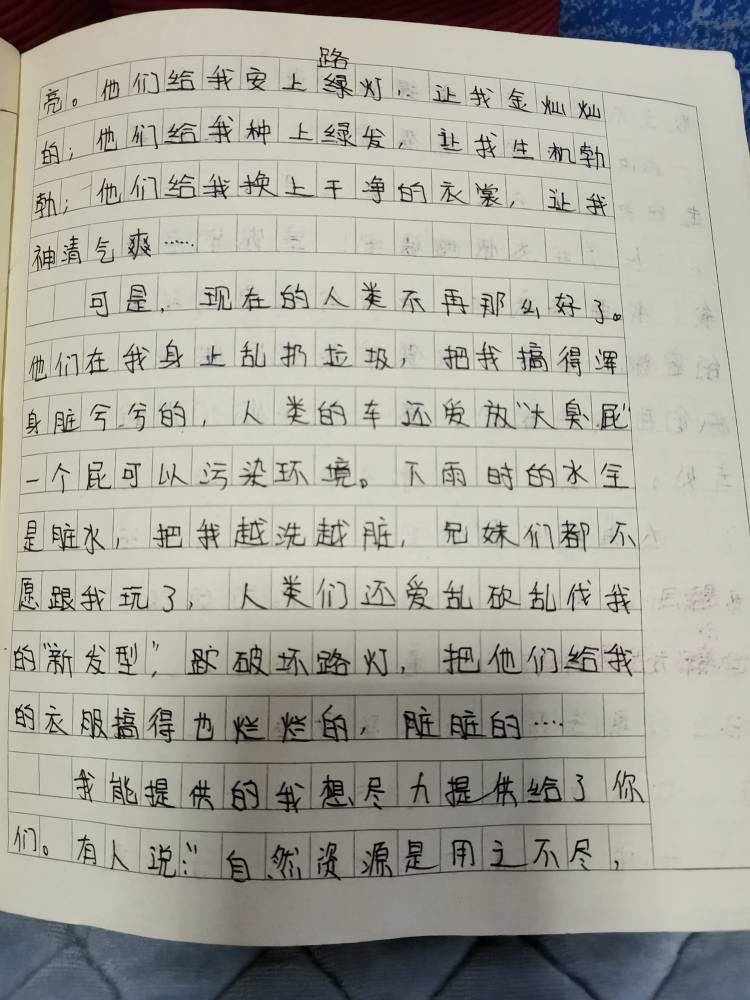 路
亮。他们给我安上绿灯，让我金灿灿
的；他们给我种上绿发，让我生机勃
勃；他们给我换上干净的衣裳，让我
神清气爽……
可是，现在的人类不再那么好了。
他们在我身上乱扔垃圾，把我搞得浑
身脏兮兮的，人类的车还爱放“大臭屁”
一个屁可以污染环境。下雨时的水全
是脏水，把我越洗越脏，兄妹们都不
愿跟我玩了，人类们还爱乱砍乱伐我
的“新发型”，破坏路灯，把他们给我
的衣服搞得也烂烂的，脏脏的……
我能提供的我想尽力提供给了你
们。有人说：“自然资源是用之不尽，